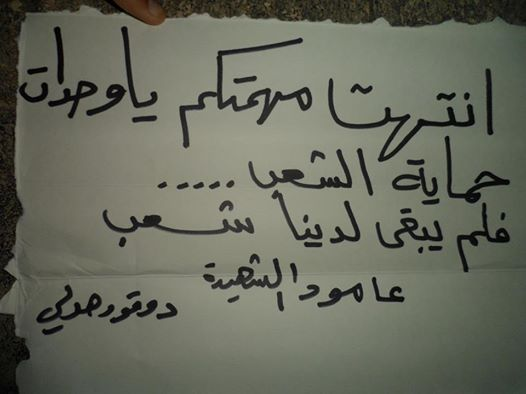 انتهت مهمتكم يا وحدات
حماية الشعب .....
فلم يبقى لدينا شعب
عامودا الشهيدة